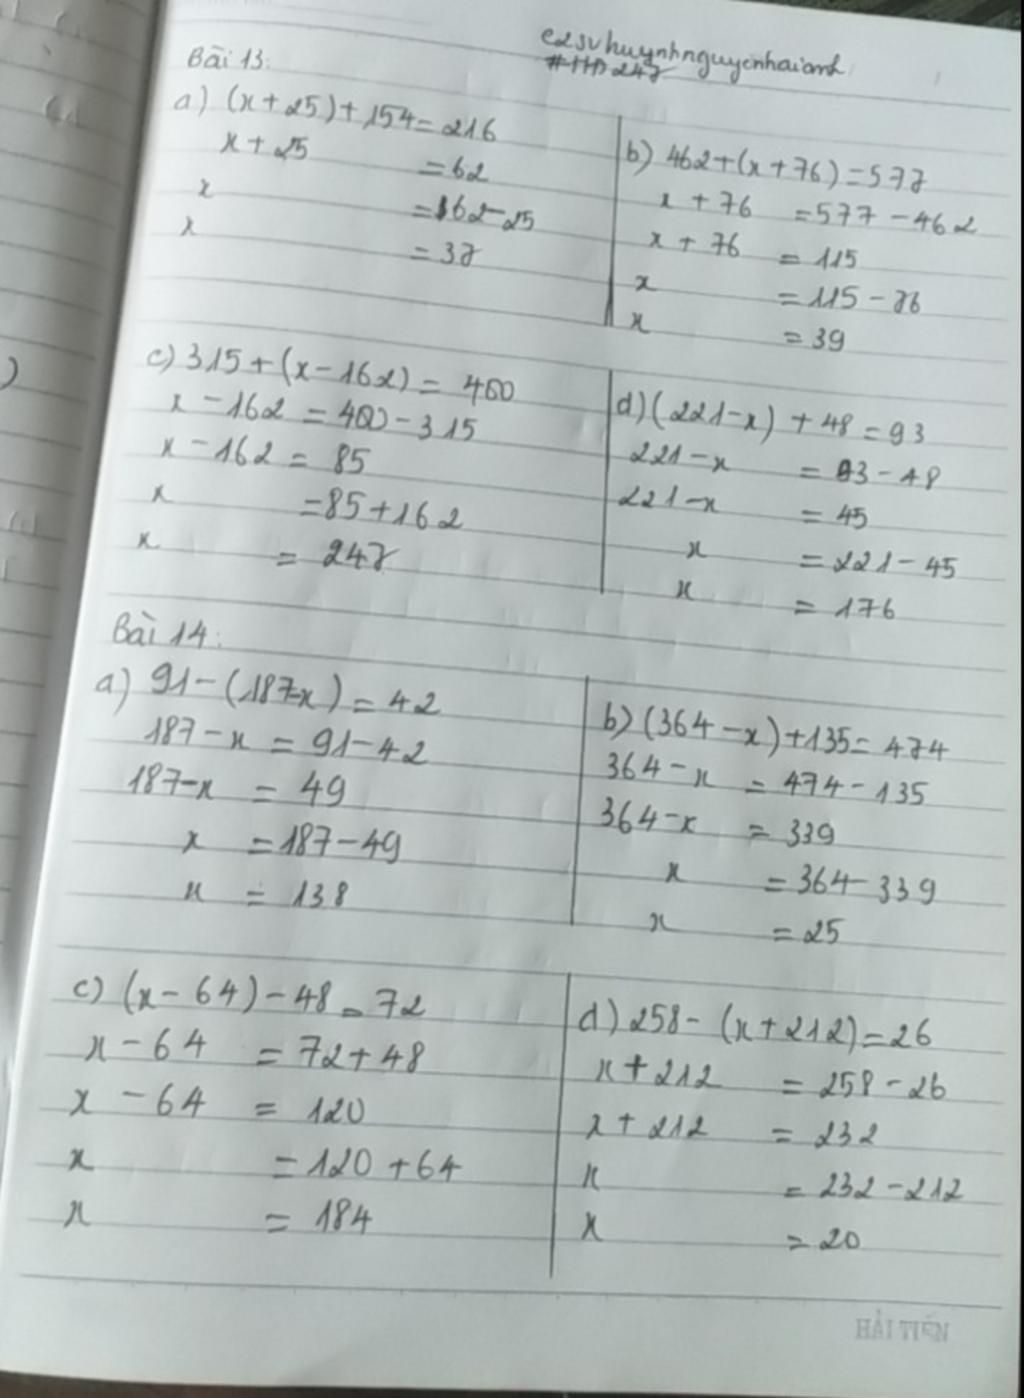 e2svhuynhnguyenhaianh
#HD247
Bài 13:
a) (x+25)+154=216
x+25 =62
x =62-25
x =37
b) 462+(x+76)=577
x+76 =577-462
x+76 =115
x =115-76
x =39
c) 315+(x-162)=400
x-162=400-315
x-162=85
x =85+162
x =247
d) (221-x)+48=93
221-x =93-48
221-x =45
x =221-45
x =176
Bài 14:
a) 91-(187-x)=42
187-x=91-42
187-x=49
x =187-49
x =138
b) (364-x)+135=474
364-x =474-135
364-x =339
x =364-339
x =25
c) (x-64)-48=72
x-64 =72+48
x-64 =120
x =120+64
x =184
d) 258-(x+212)=26
x+212 =258-26
x+212 =232
x =232-212
x =20
HẢI TIẾN